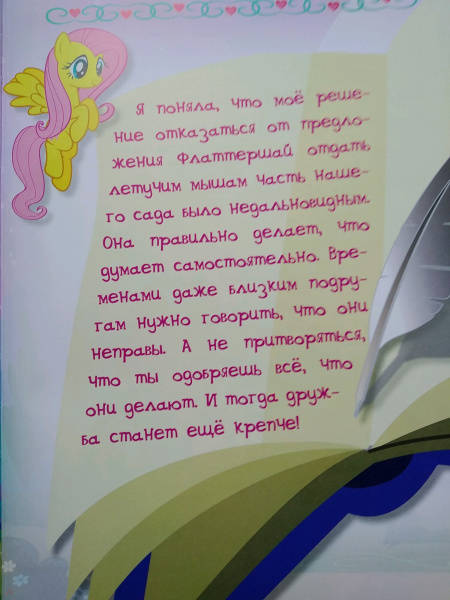 Я поняла, что моё реше-
ние отказаться от предло-
жения Флаттершай отдать
летучим мышам часть наше-
го сада было недальновидным.
Она правильно делает, что
думает самостоятельно. Вре-
менами даже близким подру-
гам нужно говорить, что они
неправы. А не притворяться,
что ты одобряешь всё, что
они делают. И тогда друж-
ба станет ещё крепче!